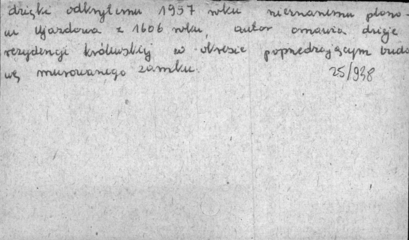 dzięki odkrytemu 1957 roku nieznanemu plano-
wi Ujazdowa z 1606 roku, autor omawia dzieje
rezydencji królewskiej w okresie poprzedzającym budo
wę murowanego zamku.
25/938